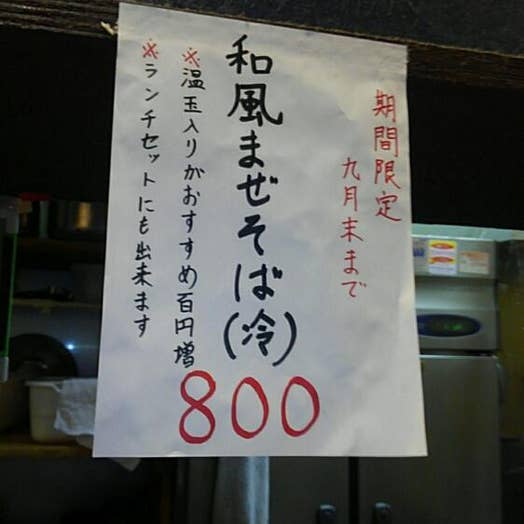 期間限定
九月末まで
和風まぜそば(冷)
800
※温玉入りがおすすめ百円増
※ランチセットにも出来ます